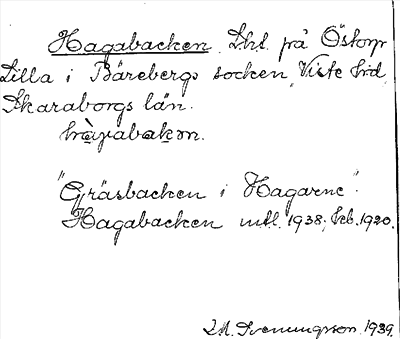 Hagabacken. Lht. på Östorp
Lilla i Bärebergs socken, Viste hd,
Skaraborgs län.
hàgabakɷn.
"Gräsbacken i Hagarne".
Hagabacken mtl. 1938; kb. 1920.
M. Svenungsson 1939.